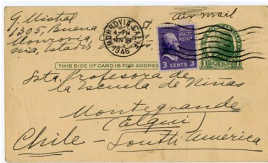 G. Mistral
1305, Buena
Monrovia
Air mail
MONROVIA, CALIF.
1946
3 CENTS 3
THIS SIDE OF CARD IS FOR ADDRESS
Sta. Profesora de
la Escuela de Niñas
Montegrande
(Elqui)
Chile - South América